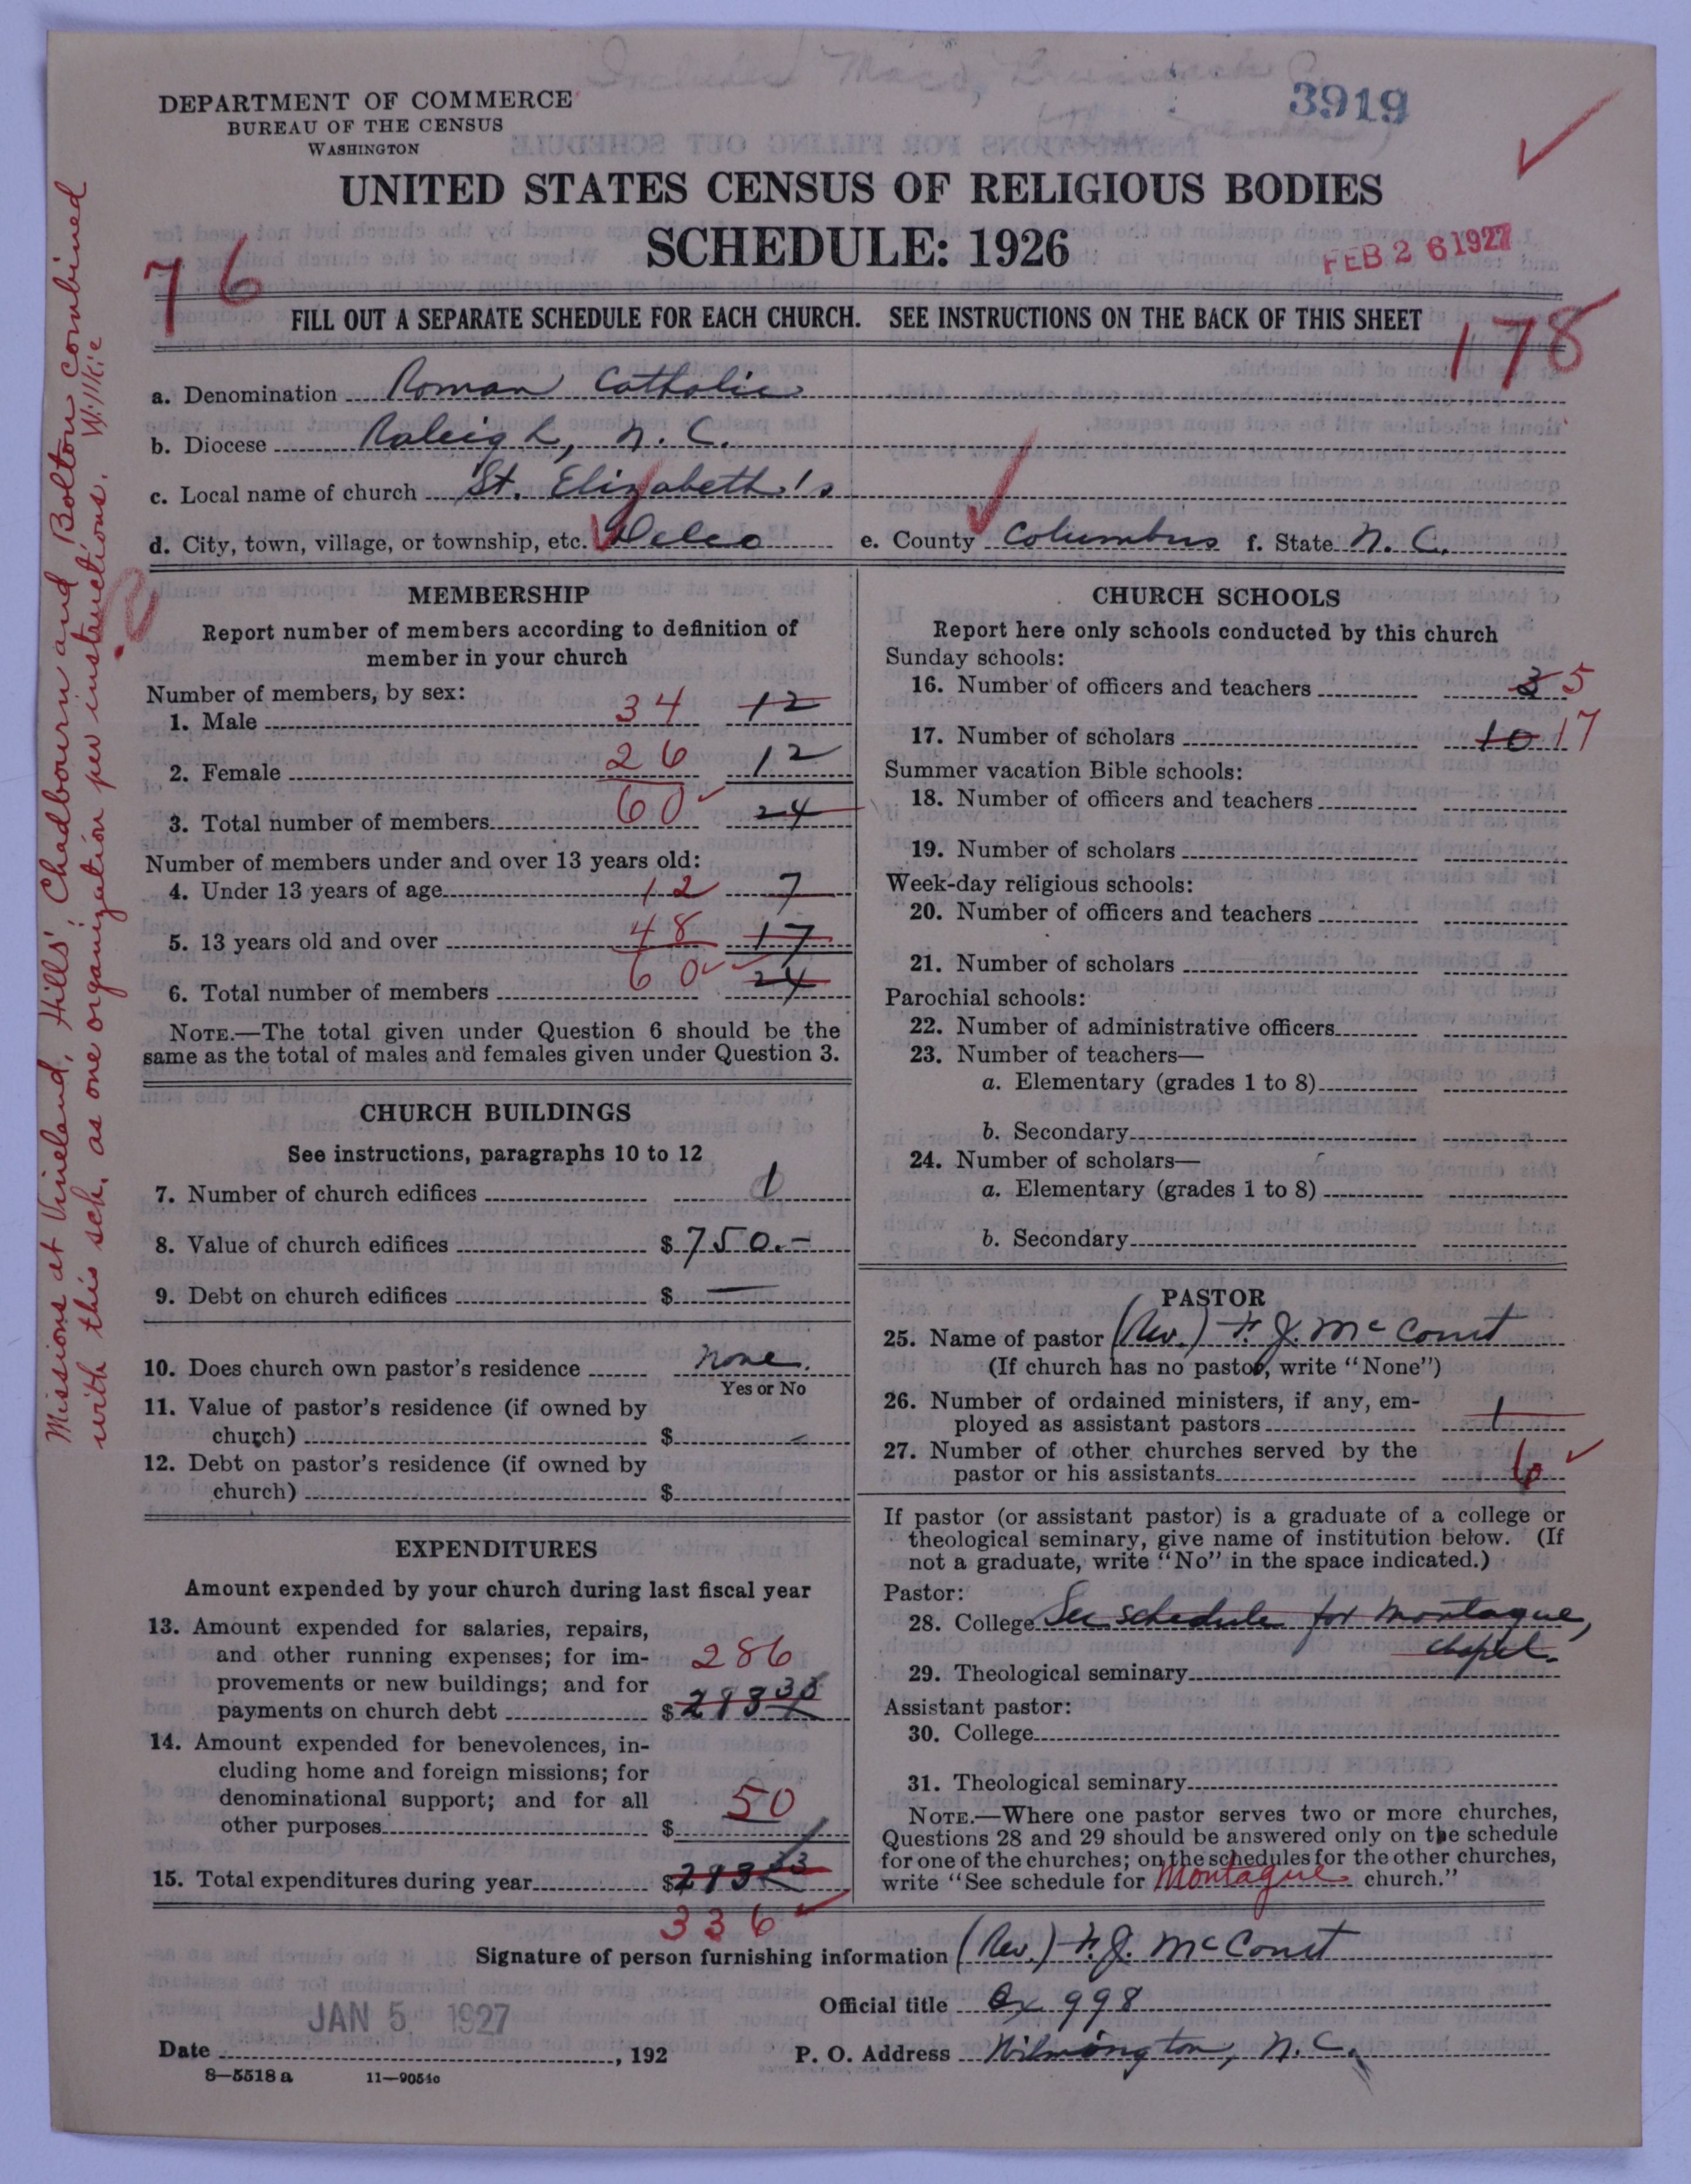 Included Maco, Brunswick Co.
3919
DEPARTMENT OF COMMERCE
BUREAU OF THE CENSUS
WASHINGTON
UNITED STATES CENSUS OF RELIGIOUS BODIES
SCHEDULE: 1926
FEB 26 1927
76
178
FILL OUT A SEPARATE SCHEDULE FOR EACH CHURCH. SEE INSTRUCTIONS ON THE BACK OF THIS SHEET
a. Denomination Roman Catholic
b. Diocese Raleigh, N. C.
c. Local name of church St. Elizabeth's
d. City, town, village, or township, etc. Delco e. County Columbus f. State N. C.
Missions at Vineland, Hills', Chadbourn and Bolton combined
with this sch. as one organization per instructions. Willkie
MEMBERSHIP
Report number of members according to definition of
member in your church
Number of members, by sex:
1. Male 34 12
2. Female 26 12
3. Total number of members 60 24
Number of members under and over 13 years old:
4. Under 13 years of age 12 7
5. 13 years old and over 48 17
6. Total number of members 60 24
NOTE.—The total given under Question 6 should be the
same as the total of males and females given under Question 3.
CHURCH BUILDINGS
See instructions, paragraphs 10 to 12
7. Number of church edifices 1
8. Value of church edifices $ 750.-
9. Debt on church edifices $ —
10. Does church own pastor's residence none.
Yes or No
11. Value of pastor's residence (if owned by
church) $
12. Debt on pastor's residence (if owned by
church) $
EXPENDITURES
Amount expended by your church during last fiscal year
13. Amount expended for salaries, repairs,
and other running expenses; for im-
provements or new buildings; and for
payments on church debt $ 286
14. Amount expended for benevolences, in-
cluding home and foreign missions; for
denominational support; and for all
other purposes $ 50
15. Total expenditures during year $
336
CHURCH SCHOOLS
Report here only schools conducted by this church
Sunday schools:
16. Number of officers and teachers 3 5
17. Number of scholars 10 17
Summer vacation Bible schools:
18. Number of officers and teachers
19. Number of scholars
Week-day religious schools:
20. Number of officers and teachers
21. Number of scholars
Parochial schools:
22. Number of administrative officers
23. Number of teachers—
a. Elementary (grades 1 to 8)
b. Secondary
24. Number of scholars—
a. Elementary (grades 1 to 8)
b. Secondary
PASTOR
25. Name of pastor (Rev.) F. J. McCourt
(If church has no pastor, write "None")
26. Number of ordained ministers, if any, em-
ployed as assistant pastors 1
27. Number of other churches served by the
pastor or his assistants 6
If pastor (or assistant pastor) is a graduate of a college or
theological seminary, give name of institution below. (If
not a graduate, write "No" in the space indicated.)
Pastor:
28. College See schedule for Montague,
chapel.
29. Theological seminary
Assistant pastor:
30. College
31. Theological seminary
NOTE.—Where one pastor serves two or more churches,
Questions 28 and 29 should be answered only on the schedule
for one of the churches; on the schedules for the other churches,
write "See schedule for Montague church."
Signature of person furnishing information (Rev.) F. J. McCourt
Official title Bx 998
JAN 5 1927
Date , 192
P. O. Address Wilmington, N. C.
8—5518 a 11—9054c